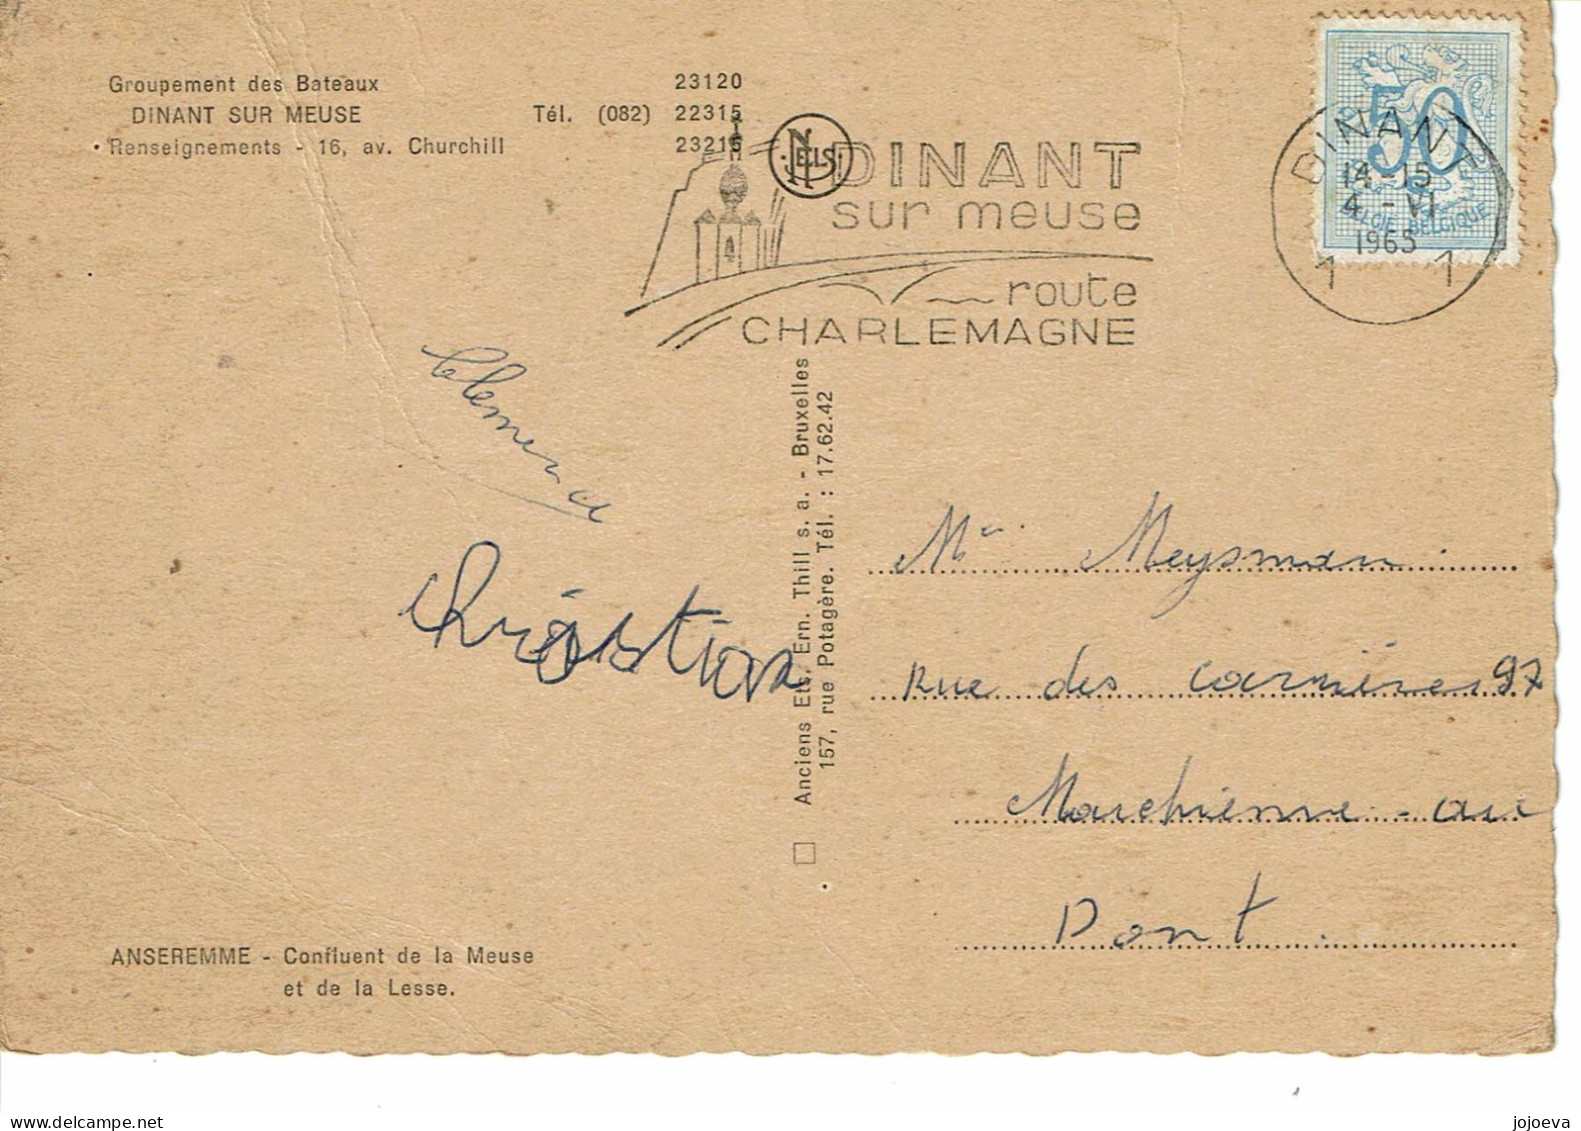 Groupement des Bateaux
DINANT SUR MEUSE
Renseignements - 16, av. Churchill
Tél. (082) 23120
22315
23215
NELS
DINANT
sur meuse
route
CHARLEMAGNE
DINANT
14-15
4 - VI
1965
1 1
50
BELGIE-BELGIQUE
Clemence
Christian
Anciens Ets. Ern. Thill s. a. - Bruxelles
157, rue Potagère. Tél. : 17.62.42
Mr Meysman
Rue des carrières 97
Marchienne-au
Pont
ANSEREMME - Confluent de la Meuse
et de la Lesse.
delcampe.net
jojoeva